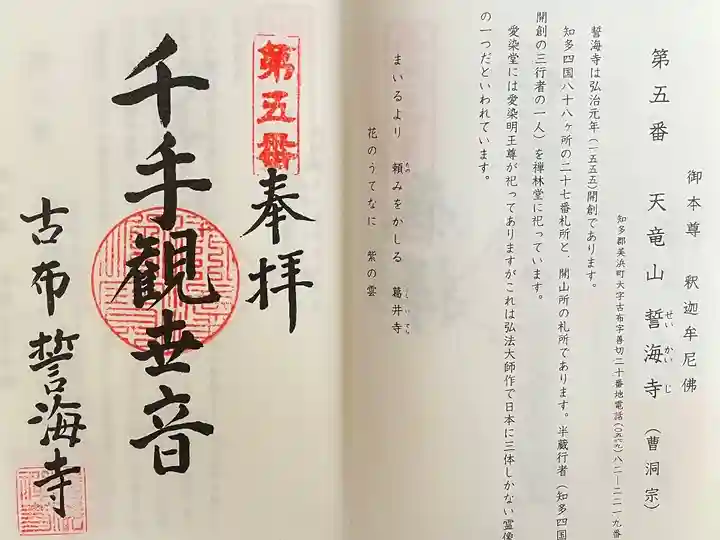 御本尊 釈迦牟尼佛
第五番 天竜山 誓海寺 (曹洞宗)
せい かい じ
知多郡美浜町大字古布字善切二十番地電話(〇五六九)八二―二二一九番
誓海寺は弘治元年(一五五五)開創であります。
知多四国八十八ヶ所の二十七番札所と、開山所の札所であります。半蔵行者(知多四国
開創の三行者の一人)を禅林堂に祀っています。
愛染堂には愛染明王尊が祀ってありますがこれは弘法大師作で日本に三体しかない霊像
の一つだといわれています。
まいるより 頼みをかしる 葛井寺
たの
花のうてなに 紫の雲
第五番
奉拝
千手観世音
古布 誓海寺